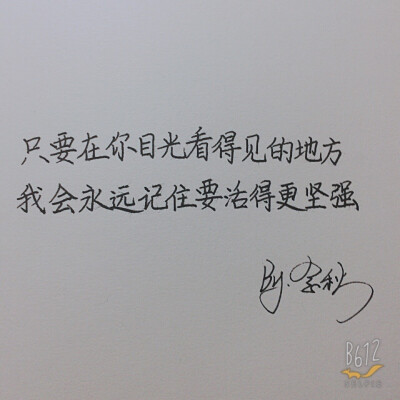 只要在你目光看得见的地方
我会永远记住要活得更坚强
By.
B612